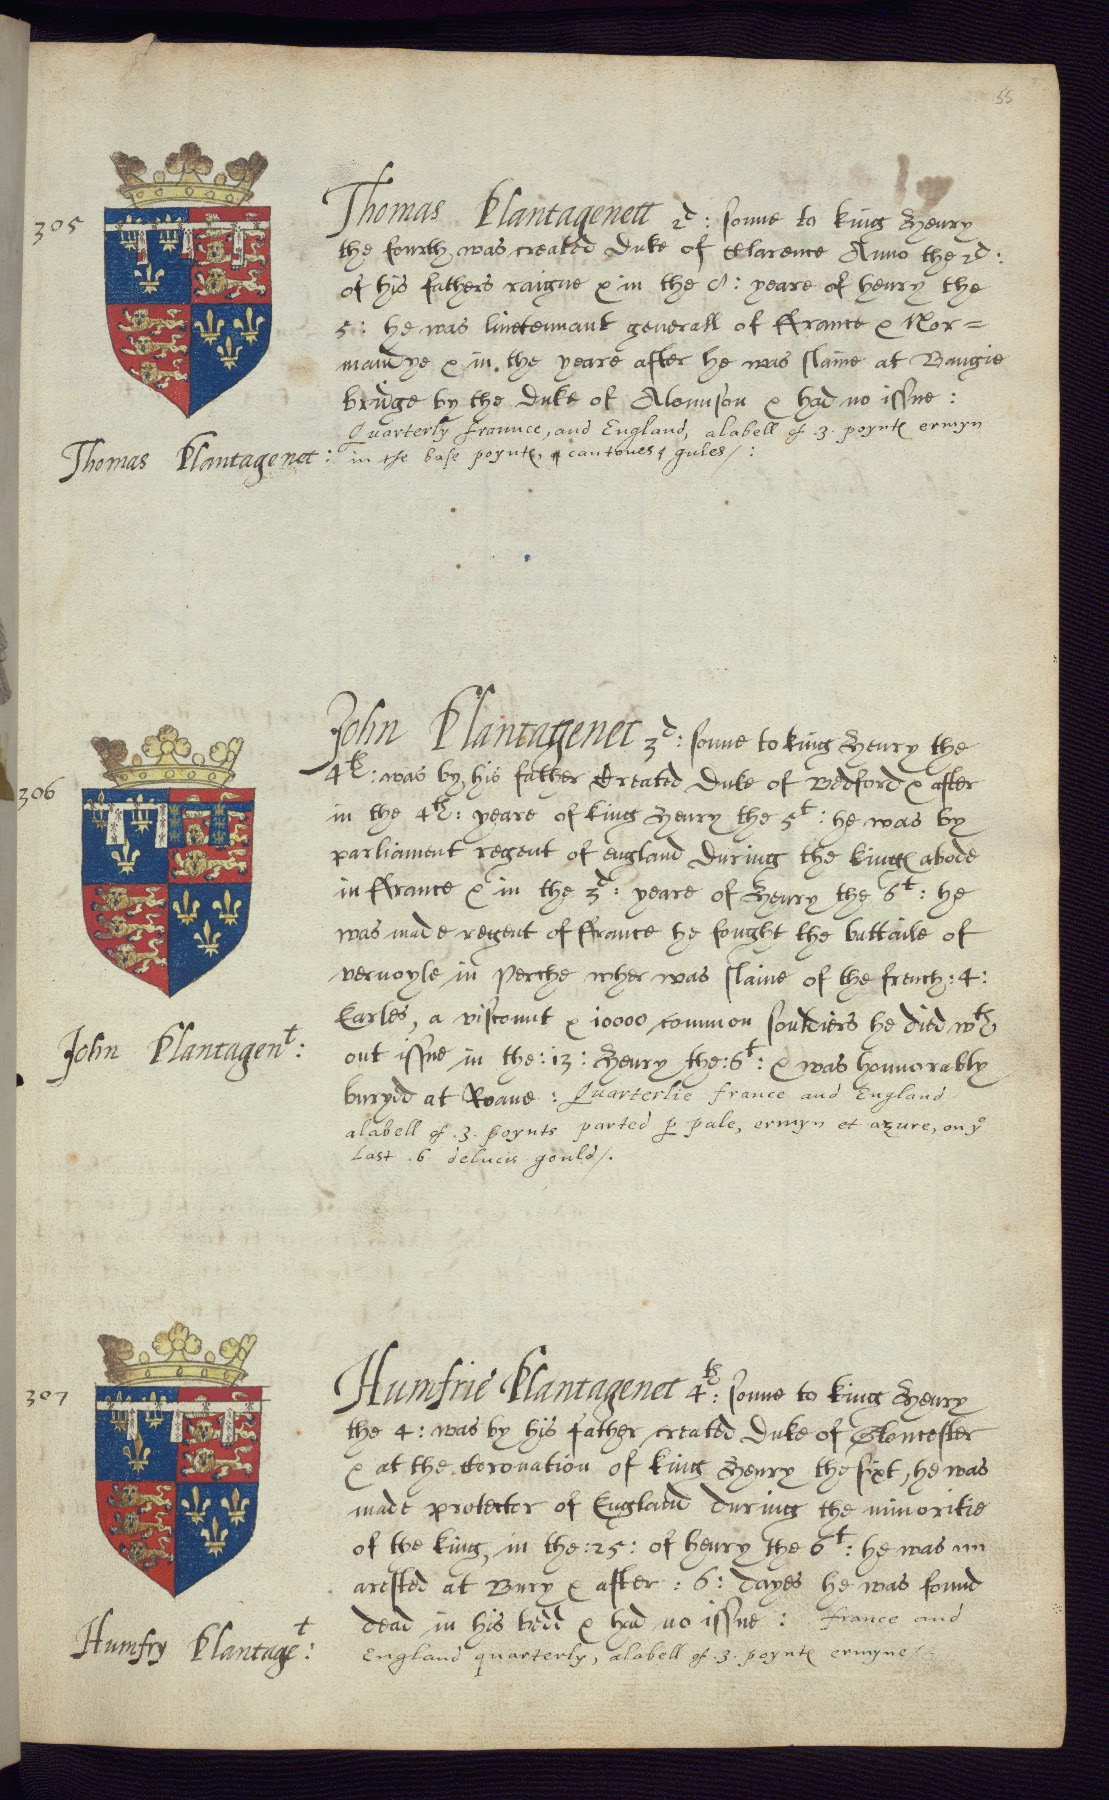 55
305
Thomas Plantagenett 2d: sonne to king Henry
the fourth, was created Duke of Clarence Anno the 2d:
of his fathers raigne & in the 8: yeare of henry the
5: he was lieutennant generall of ffrance & Nor=
mandye & in the yeare after he was slaine at Baugie
bridge by the Duke of Alonnson & had no issue:
Quarterly fraunce, and England, a labell of .3. poyntes ermyn
in the base poyntes, cantones gules/:
Thomas Plantagenet:
306
John Plantagenet 3d: sonne to king Henry the
4th: was by his father Created Duke of Bedford & after
in the 4th: yeare of king Henry the 5t: he was by
parliament regent of england during the kinges abode
in ffrance & in the 3d: yeare of Henry the 6t: he
was made regent of ffrance he fought the battaile of
vernoyle in Perche wher was slaine of the french: 4:
Earles, a viscount & 10000 common souldiers he died wth
out issue in the: 13: Henry the: 6t: & was honnorably
buryed at Roane: Quarterlie france and England
a labell of .3. poynts parted p pale, ermyn et azure, on ye
last .6 delucis gould/.
John Plantagent:
307
Humfrie Plantagenet 4th: sonne to king Henry
the 4: was by his father created Duke of Gloucester
& at the Coronation of king Henry the sixt, he was
made protector of England during the minoritie
of the king, in the: 25: of henry the 6t: he was
arested at Bury & after: 6: dayes he was found
dead in his bedd & had no issue: france and
England quarterly, a labell of .3. poyntes ermyne/.
Humfry Plantaget: